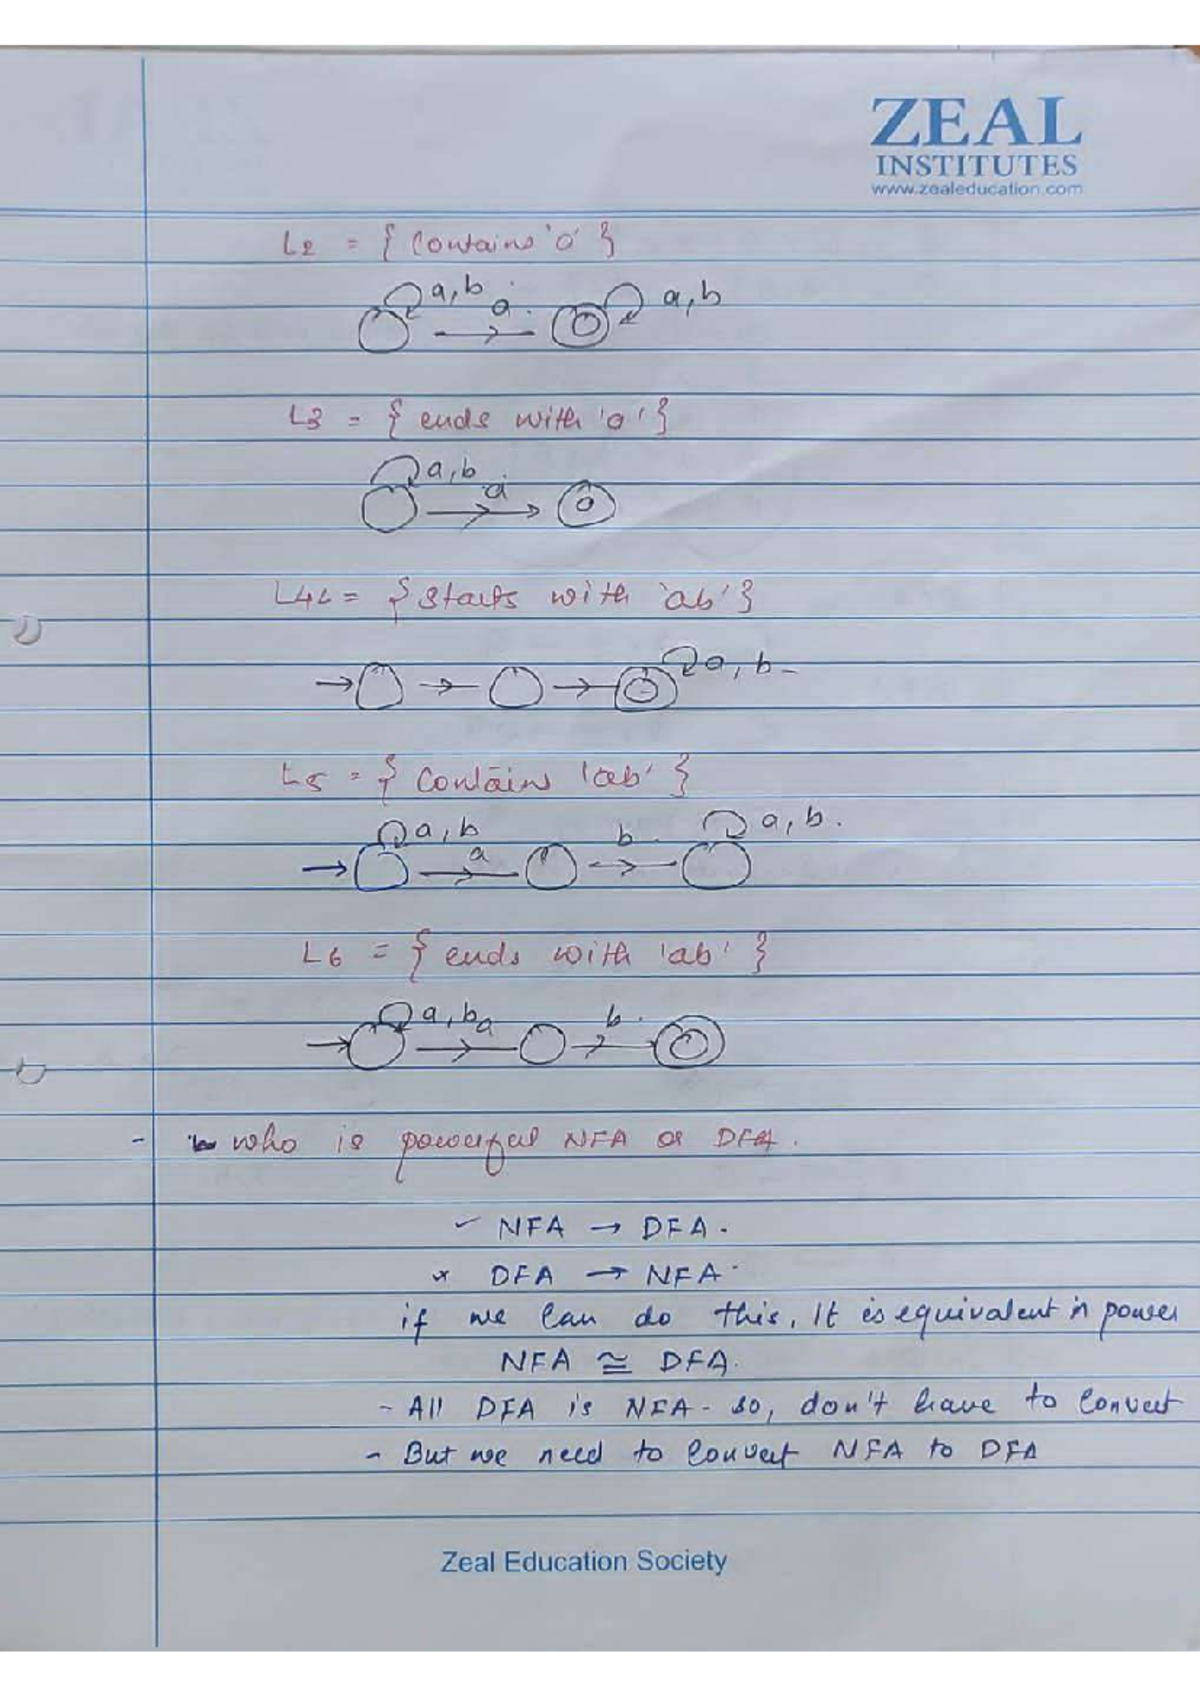 ZEAL
INSTITUTES
www.zealeducation.com
L2 = { Contains 'a' }
a,b a a,b
L3 = { ends with 'a' }
a,b a
= { Starts with 'ab' }
a, b
L5 = { Contains 'ab' }
a, b a b a, b.
L6 = { ends with 'ab' }
a, b a b.
- who is powerful NFA or DFA.
✓ NFA → DFA.
x DFA → NFA.
if we can do this, It is equivalent in power
NFA ≅ DFA.
- All DFA is NFA - so, don't have to Convert
- But we need to Convert NFA to DFA
Zeal Education Society